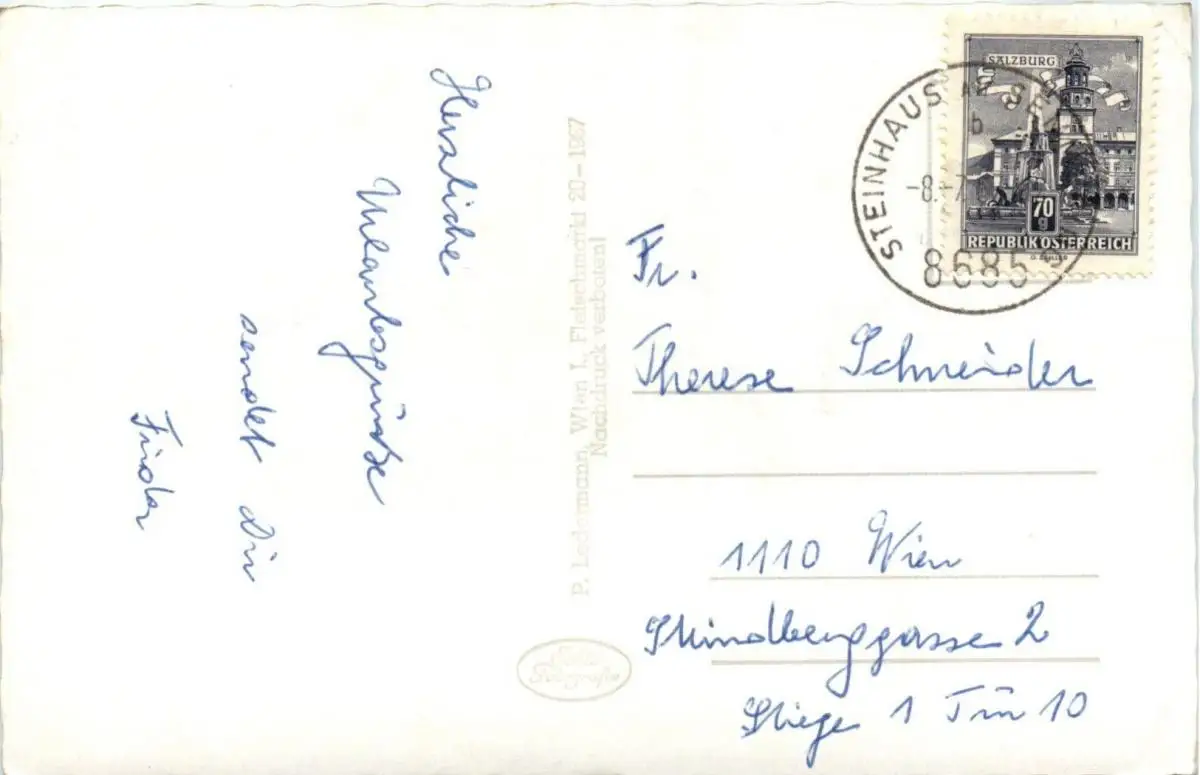 Herzliche
Urlaubsgrüße
sendet Dir
P. Ledermann, Wien I., Fleischmarkt 20-1967
Nachdruck verboten!
SALZBURG
70
g
REPUBLIK ÖSTERREICH
STEINHAUS
b
-8.-7.
8685
Fr.
Therese Schneider
1110 Wien
gasse 2
Stiege 1 Tür 10